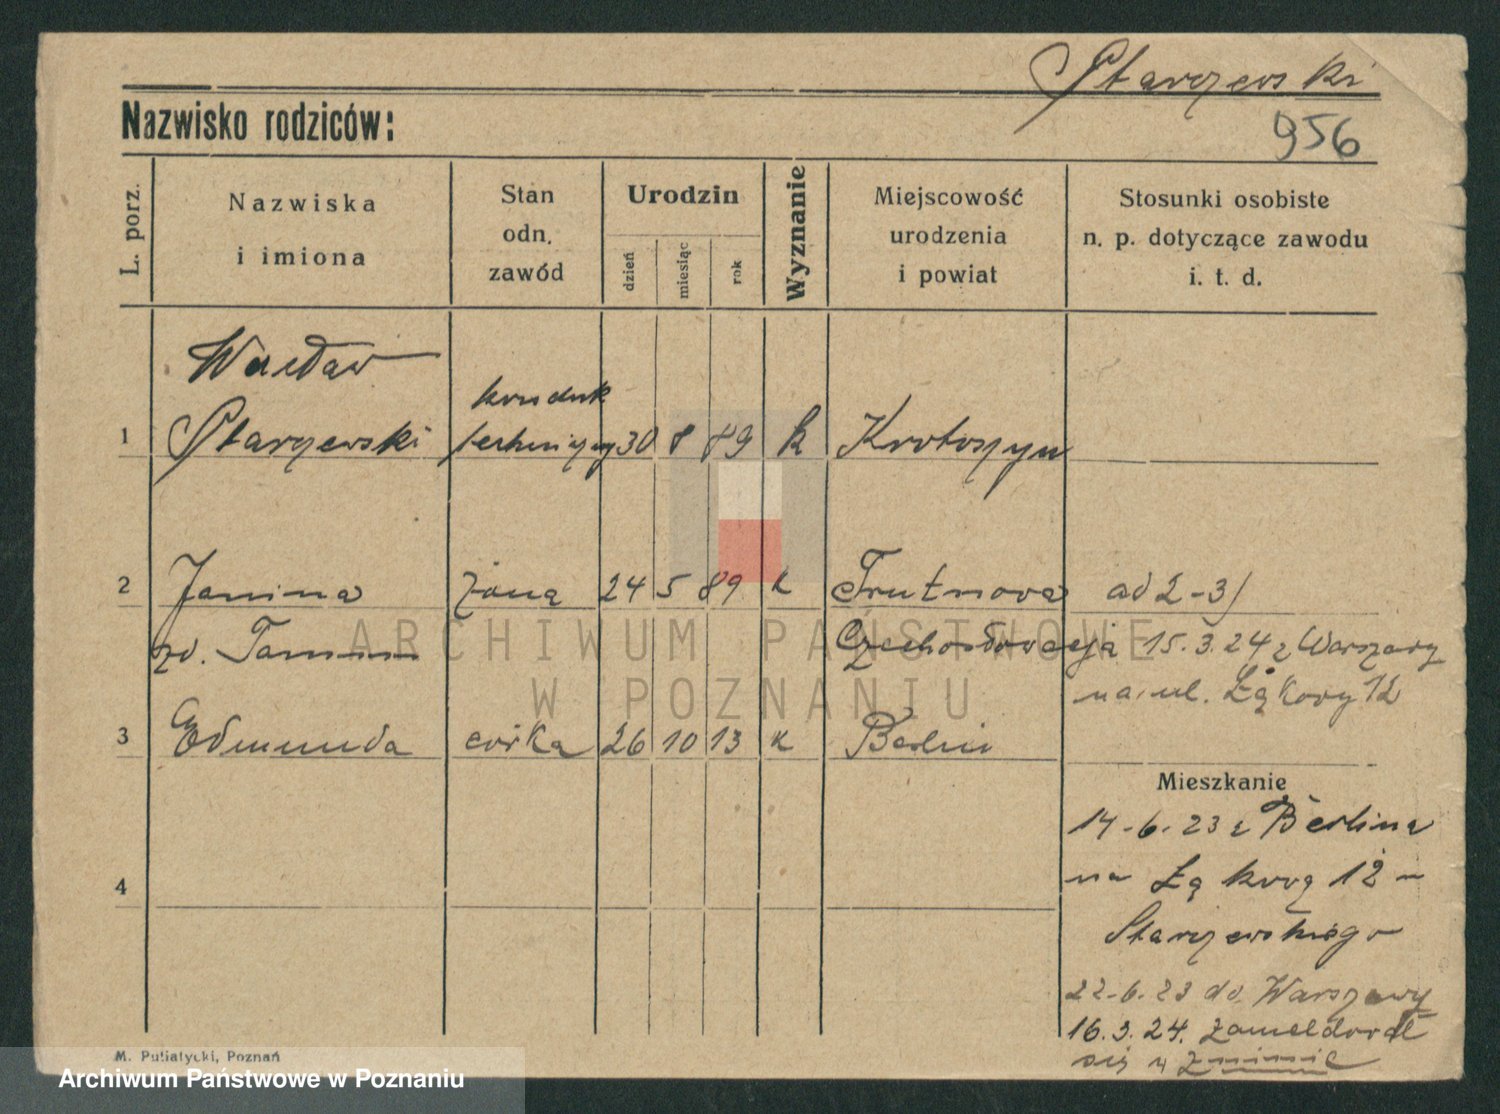 Starzewski
Nazwisko rodziców:
956
L. porz.
Nazwiska
i imiona
Stan
odn.
zawód
Urodzin
dzień
miesiąc
rok
Wyznanie
Miejscowość
urodzenia
i powiat
Stosunki osobiste
n. p. dotyczące zawodu
i. t. d.
Wacław
konduk
1 Starzewski techniczny 30 8 89 k Krotoszyn
2 Janina żona 24 5 89 k Trutnova ad 2-3)
zd. Czechosłowacja 15.3.24 z Warszawy
na ul. Łąkowy 12
3 Edmunda córka 26 10 13 k Berlin
Mieszkanie
14-6-23 z Berlina
na Łąkową 12 -
4
Starzewskiego
22-6-23 do Warszawy
16.3.24. zameldował
się
M. Putiatycki, Poznań
ARCHIWUM PAŃSTWOWE
W POZNANIU
Archiwum Państwowe w Poznaniu